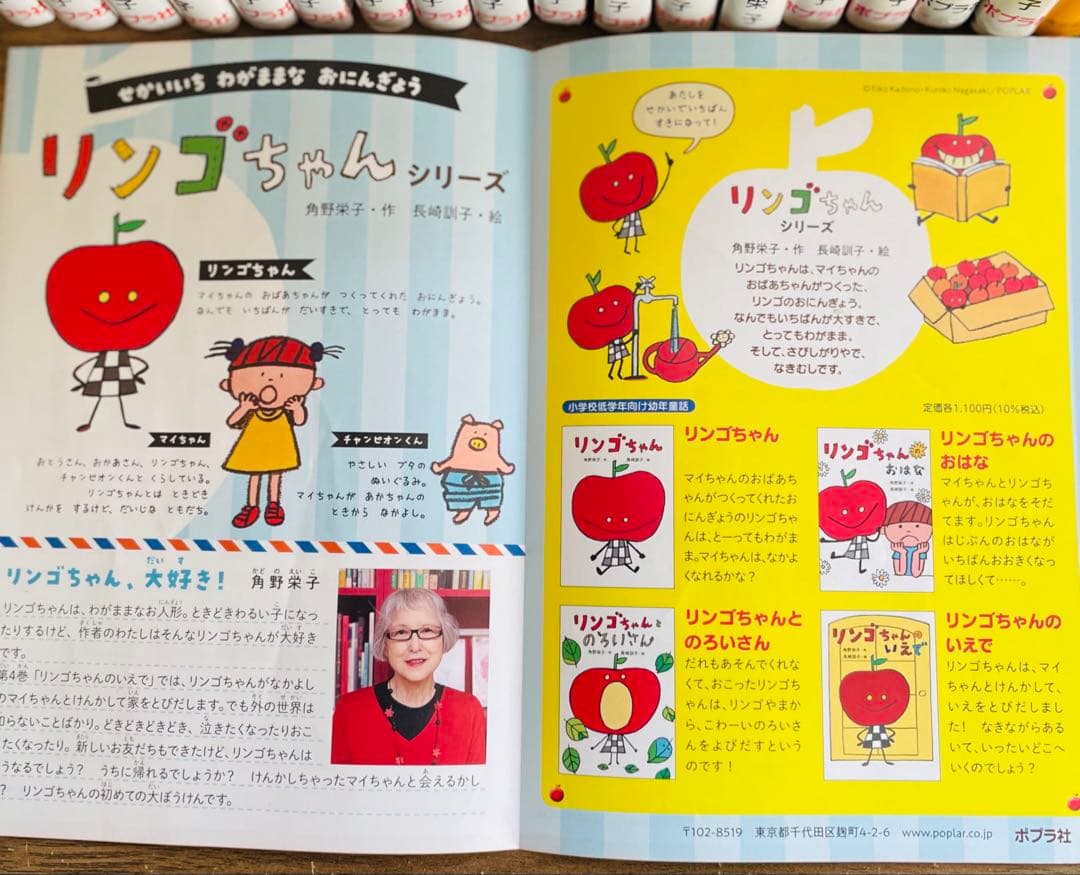 せかいいち わがままな おにんぎょう
リンゴちゃん シリーズ
角野栄子・作 長崎訓子・絵
リンゴちゃん
マイちゃんの おばあちゃんが つくってくれた おにんぎょう。
なんでも いちばんが だいすきで、とっても わがまま。
マイちゃん
おとうさん、おかあさん、リンゴちゃん、
チャンピオンくんと くらしている。
リンゴちゃんとは ときどき
けんかを するけど、だいじな ともだち。
チャンピオンくん
やさしい ブタの
ぬいぐるみ。
マイちゃんが あかちゃんの
ときから なかよし。
リンゴちゃん、大好き!
角野栄子
リンゴちゃんは、わがままなお人形。ときどきわるい子になっ
たりするけど、作者のわたしはそんなリンゴちゃんが大好き
です。
第4巻「リンゴちゃんのいえで」では、リンゴちゃんがなかよし
のマイちゃんとけんかして家をとびだします。でも外の世界は
知らないことばかり。どきどきどきどき、泣きたくなったりおこ
たくなったり。新しいお友だちもできたけど、リンゴちゃんは
うなるでしょう? うちに帰れるでしょうか? けんかしちゃったマイちゃんと会えるかし
? リンゴちゃんの初めての大ぼうけんです。
© Eiko Kadono・Kuniko Nagasaki/POPLAR
あたしを
せかいでいちばん
すきになって!
リンゴちゃん
シリーズ
角野栄子・作 長崎訓子・絵
リンゴちゃんは、マイちゃんの
おばあちゃんがつくった、
リンゴのおにんぎょう。
なんでもいちばんが大すきで、
とってもわがまま。
そして、さびしがりやで、
なきむしです。
小学校低学年向け幼年童話
定価各1,100円(10%税込)
リンゴちゃん
リンゴちゃん
マイちゃんのおばあち
ゃんがつくってくれたお
にんぎょうのリンゴちゃ
んは、とーってもわがま
ま。マイちゃんは、なかよ
くなれるかな?
リンゴちゃんの
おはな
リンゴちゃんの
おはな
マイちゃんとリンゴち
ゃんが、おはなをそだ
てます。リンゴちゃん
はじぶんのおはなが
いちばんおおきくなっ
てほしくて……。
リンゴちゃんと
のろいさん
リンゴちゃんと
のろいさん
だれもあそんでくれな
くて、おこったリンゴち
ゃんは、リンゴやまか
ら、こわーいのろいさ
んをよびだすという
のです!
リンゴちゃんの
いえで
リンゴちゃんの
いえで
リンゴちゃんは、マイ
ちゃんとけんかして、
いえをとびだしまし
た! なきながらある
いて、いったいどこへ
いくのでしょう?
〒102-8519 東京都千代田区麹町4-2-6 www.poplar.co.jp ポプラ社